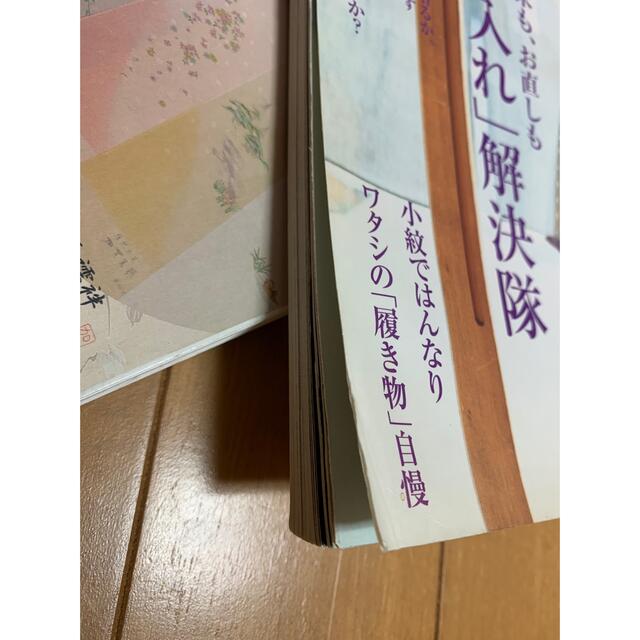 も、お直しも
入れ」解決隊
するか、
す
か?
小紋ではんなり
ワタシの「履き物」自慢。